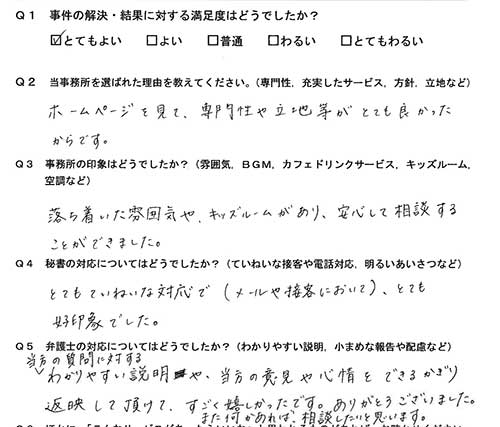 Q1 事件の解決・結果に対する満足度はどうでしたか?
☑とてもよい □よい □普通 □わるい □とてもわるい
Q2 当事務所を選ばれた理由を教えてください。(専門性，充実したサービス，方針，立地など)
ホームページを見て、専門性や立地等がとても良かった
からです。
Q3 事務所の印象はどうでしたか？(雰囲気，BGM，カフェドリンクサービス，キッズルーム，
空調など)
落ち着いた雰囲気や、キッズルームがあり、安心して相談する
ことができました。
Q4 秘書の対応についてはどうでしたか？(ていねいな接客や電話対応，明るいあいさつなど)
とてもていねいな対応で(メールや接客において)、とても
好印象でした。
Q5 弁護士の対応についてはどうでしたか？(わかりやすい説明，小まめな報告や配慮など)
当方の質問に対する
わかりやすい説明や、当方の意見や心情をできるかぎり
返映して頂けて、すごく嬉しかったです。ありがとうございました。
また何かあれば、相談したいと思います。